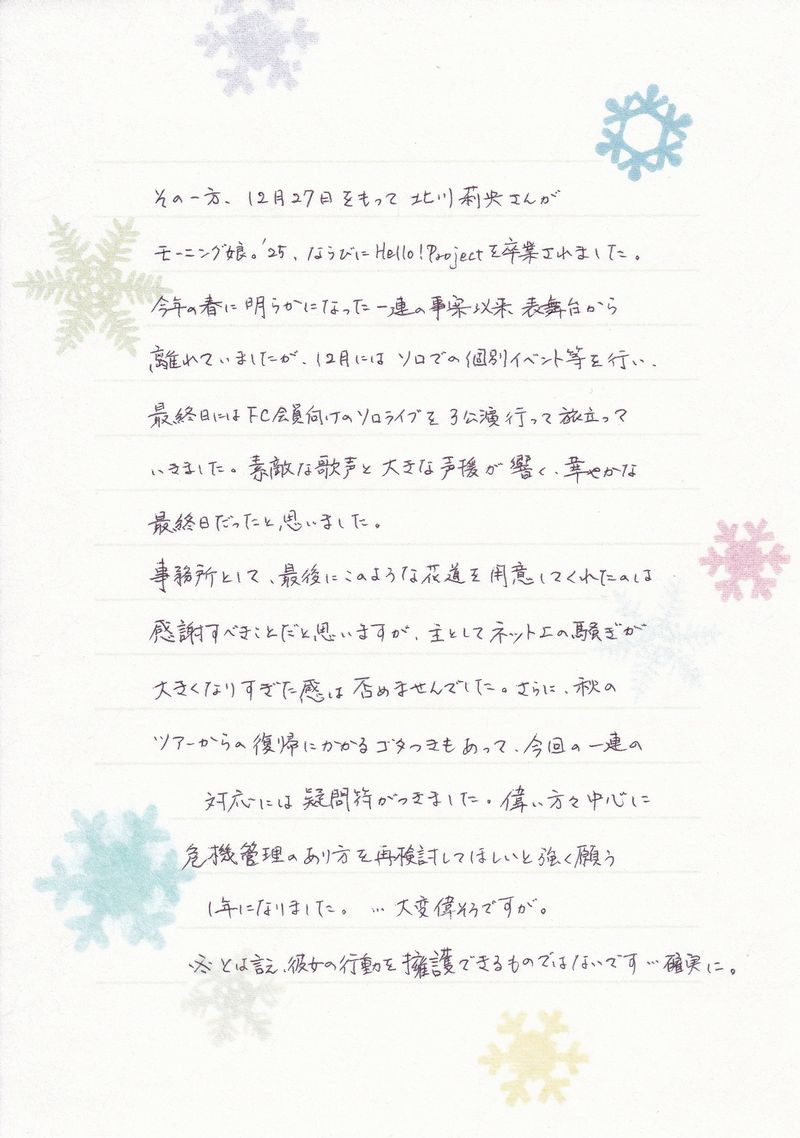 その一方、12月27日をもって 北川莉央さんが
モーニング娘。'25、ならびにHello!Projectを卒業されました。
今年の春に明らかになった一連の事案以来、表舞台から
離れていましたが、12月には ソロでの個別イベント等を行い、
最終日にはFC会員向けのソロライブを3公演行って旅立って
いきました。素敵な歌声と大きな声援が響く、華やかな
最終日だったと思いました。
事務所として、最後にこのような花道を用意してくれたのは
感謝すべきことだと思いますが、主としてネット上の騒ぎが
大きくなりすぎた感は否めませんでした。さらに、秋の
ツアーからの復帰にかかるゴタつきもあって、今回の一連の
対応には疑問符がつきました。偉い方々中心に
危機管理のあり方を再検討してほしいと強く願う
1年になりました。…大変偉そうですが。
※とは言え、彼女の行動を擁護できるものではないです…確実に。